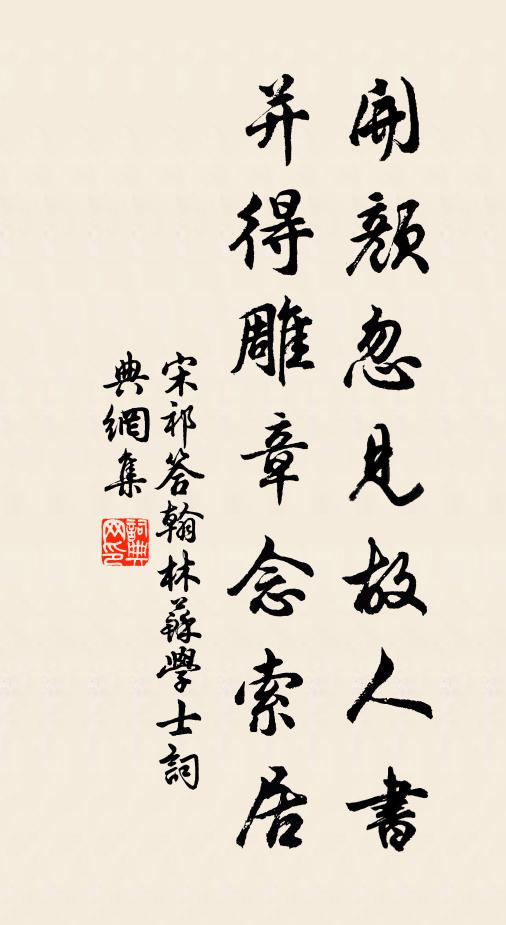 開顏忽見故人書
并得雕章念索居
宋祁答翰林蘇學士詞
典網集
詞典網印